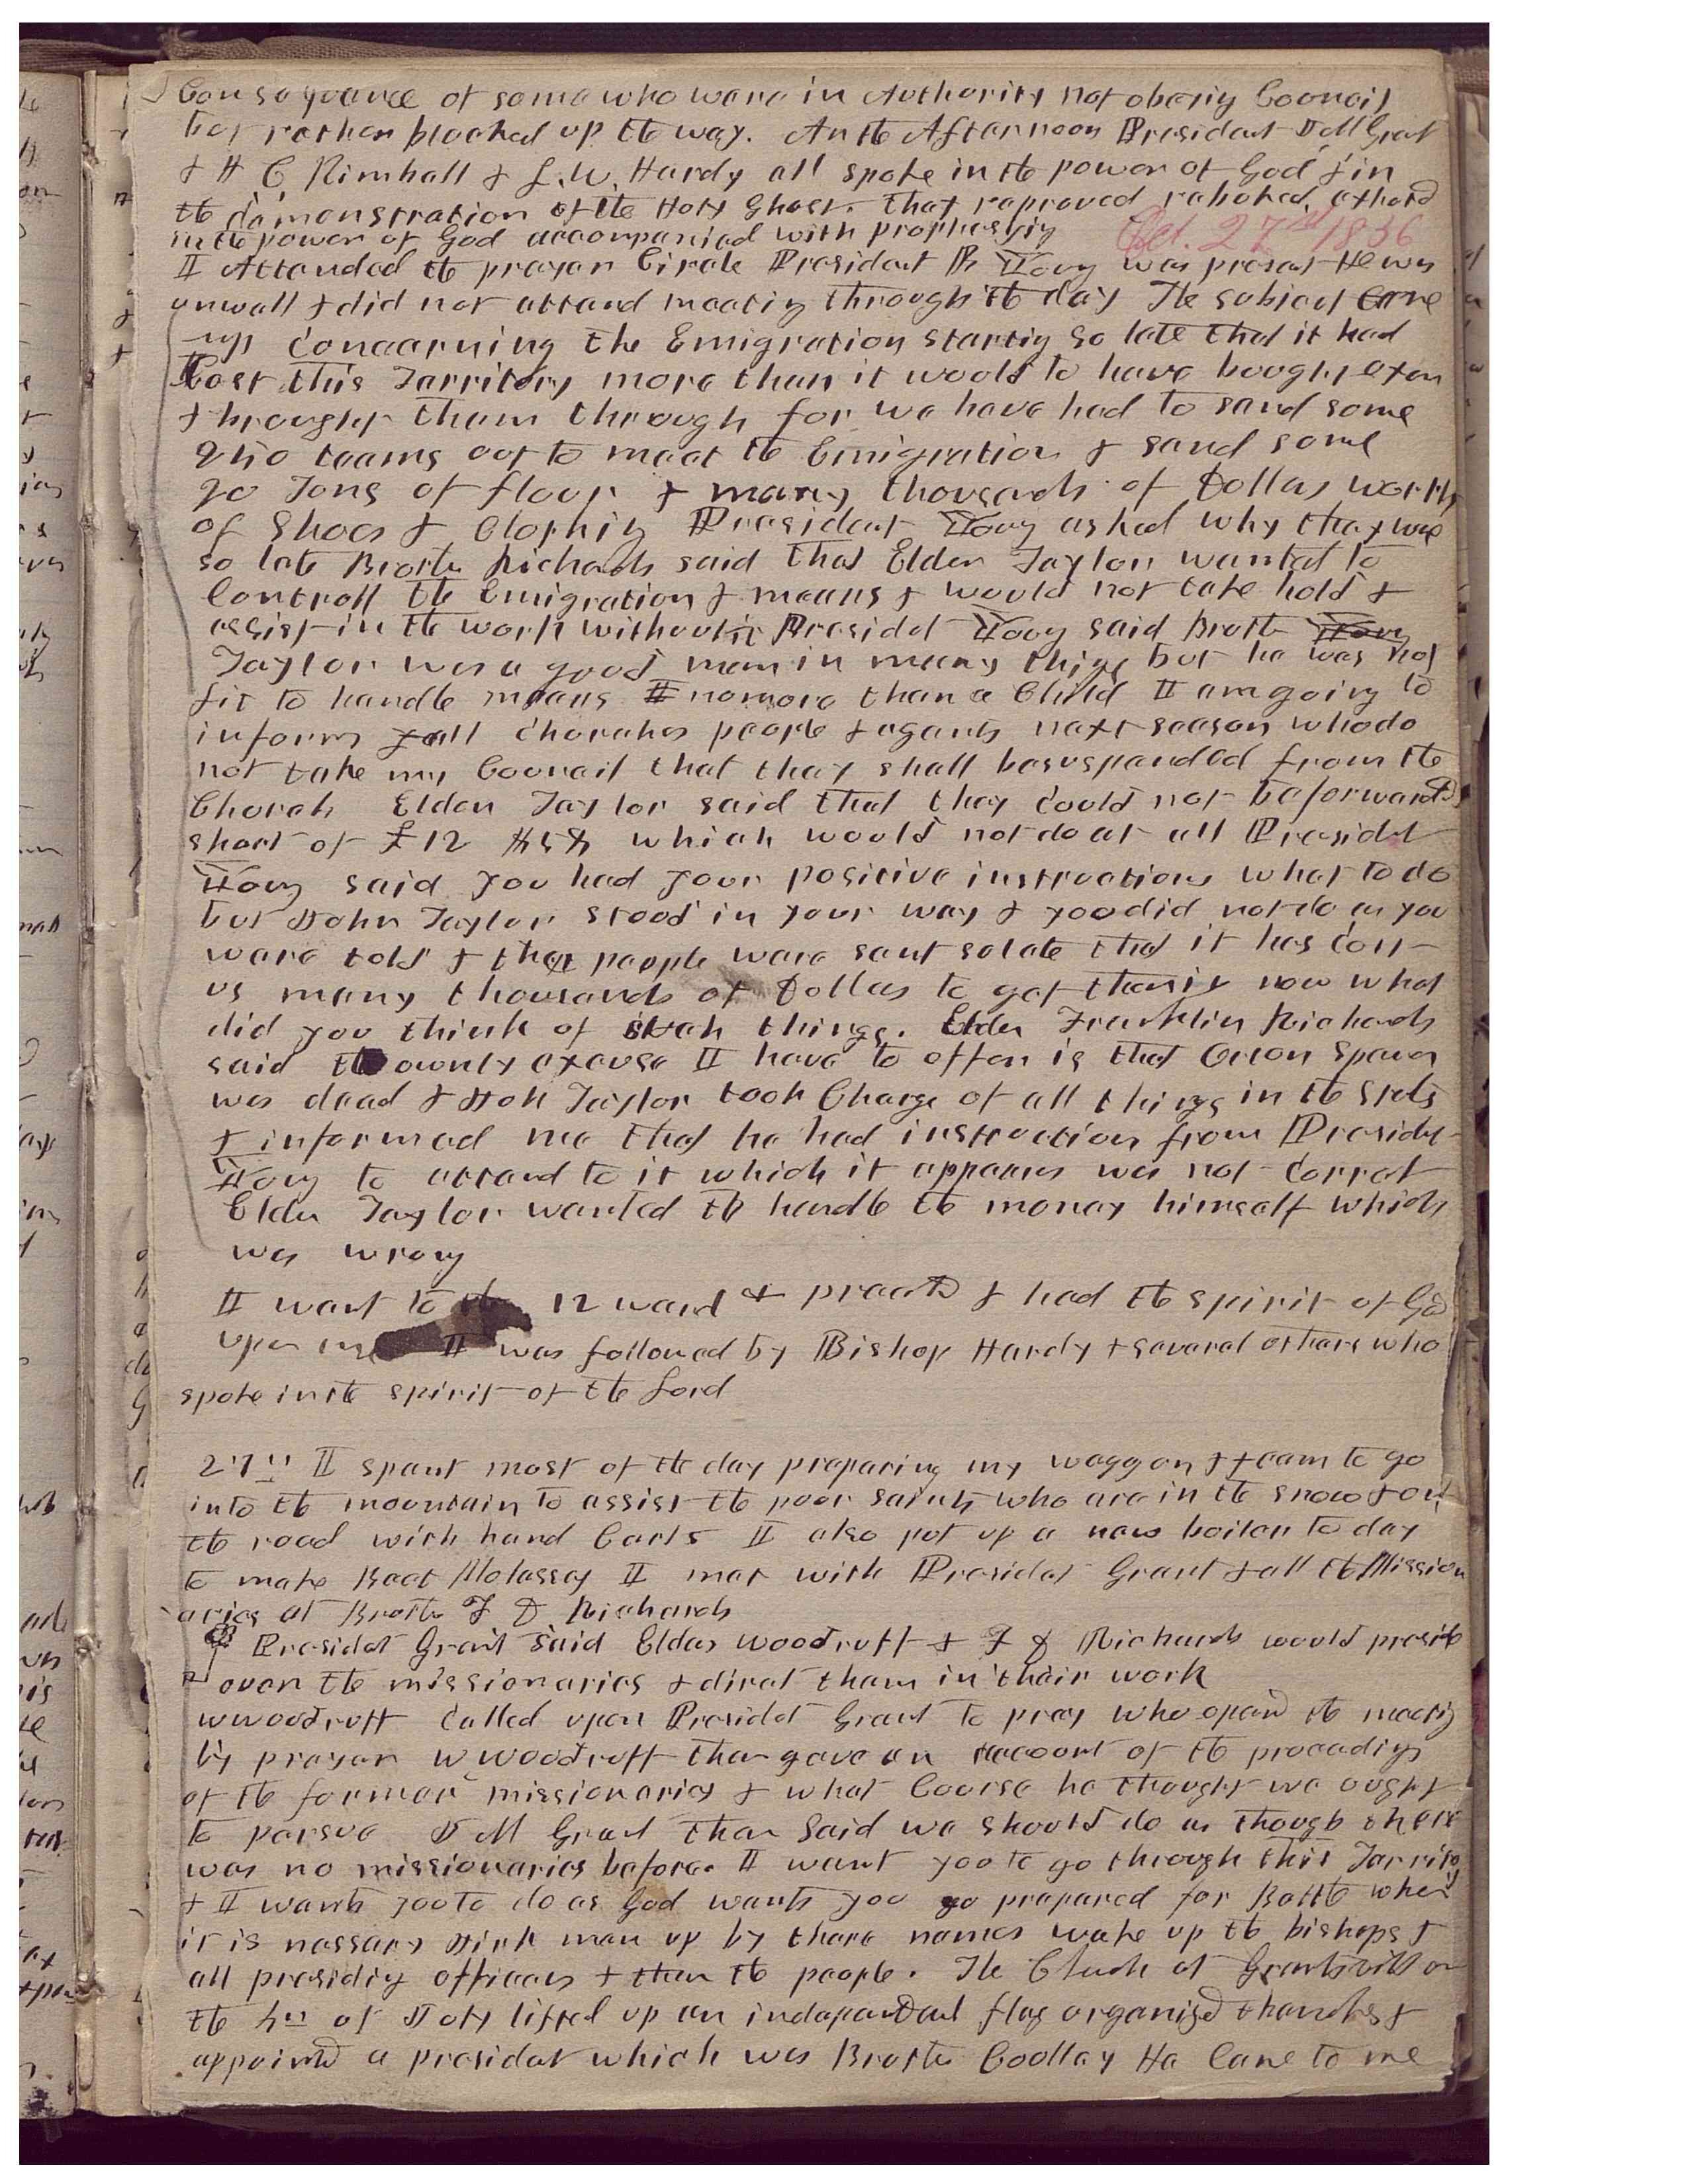 Consequence of some who were in Authority not obeyig Councill
but rather blocked up the way. In the Afternoon President J M Grant
& H C Kimball & L. W. Hardy all spoke in the power of God & in
the demonstration of the Holy Ghost. they reproved rebuked, exhorted
in the power of God accompanied with prophesyig Oct. 27th 1856
I Attended the prayer Circle President B Young was present He was
unwell & did not attend meetig through the day The subject came
up concerning the Emigration startig so late that it had
Cost this Territory more than it would to have bought oxen
& brought them through for we have had to send some
250 teams out to meet the Emigration & send some
20 Tons of flour & many thousands of Dollars worth
of Shoes & Clothig President Young asked why they were
so late Brother Richards said that Elder Taylor wanted to
Controll the Emigration & means & would not take hold &
assist in the work without it Presidet Young said Brother
Taylor was a good man in many things but he was not
fit to handle means no more than a Child I am going to
inform all churches people & agents next season who do
not take my Councel that they shall be suspended from the
Church Elder Taylor said that they could not be forwarded
short of £12 which would not do at all Presidet
Young said you had your positive instructions what to do
but John Taylor stood in your way & you did not do as you
were told & the people were sent so late that it has cost
us many thousands of Dollars to get them in now what
did you think of such things. Elder Franklin Richards
said the ownly excuse I have to offer is that Orson Spencer
was dead & John Taylor took Charge of all things in the States
& informed me that he had instruction from Presidet
Young to attend to it which it appears was not correct
Elder Taylor wanted to handle the money himself which
was wrong
I went to the 12 ward & preached & had the spirit of God
upon me I was followed by Bishop Hardy & several others who
spoke in the spirit of the Lord
27th I spent most of the day preparing my waggon & team to go
into the mountain to assist the poor saints who are in the snow & on
the road with hand Carts I also put up a new boiler to day
to make Beet Molasses I met with Presidet Grant & all the Mission
aries at Brother F D Richards
Presidet Grant said Elders Woodruff & F D Richards would preside
over the missionaries & direct them in their work
W Woodruff called upon Presidet Grant to pray who opened the meetig
by prayer W Woodruff then gave an account of the proceedigs
of the former missionaries & what Course he thought we ought
to persue J M Grant then said we should do as though there
was no missionaries before. I want you to go through this Territory
& I want you to do as God wants you go prepared for Battle when
it is nessary Jirk men up by there names wake up the bishops &
all presidig officers & then the people. The Clerk at Grantsville on
the 4th of July lifted up an independant flag organized themselves &
appointed a presidet which was Brother Cooley He Came to me